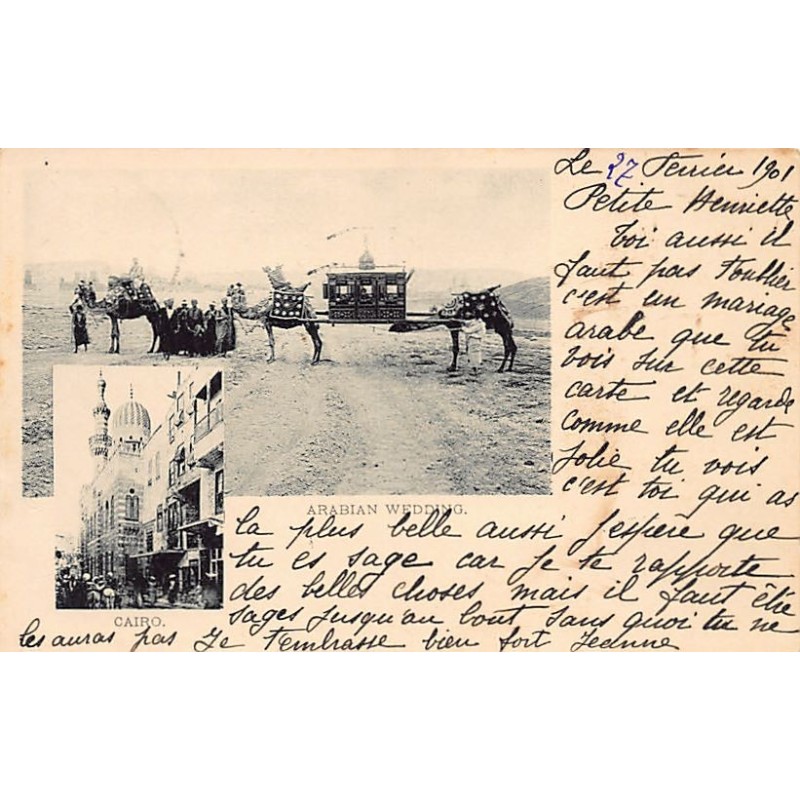 Le 27 Fevrier 1901
Petite Henriette
toi aussi il
faut pas t'oublier
c'est un mariage
arabe que tu
vois sur cette
carte et regarde
comme elle est
jolie tu vois
c'est toi qui as
ARABIAN WEDDING.
la plus belle aussi J'espère que
tu es sage car Je te rapporte
des belles choses mais il faut être
sages Jusqu'au bout sans quoi tu ne
CAIRO.
les auras pas Je t'embrasse bien fort Jeanne